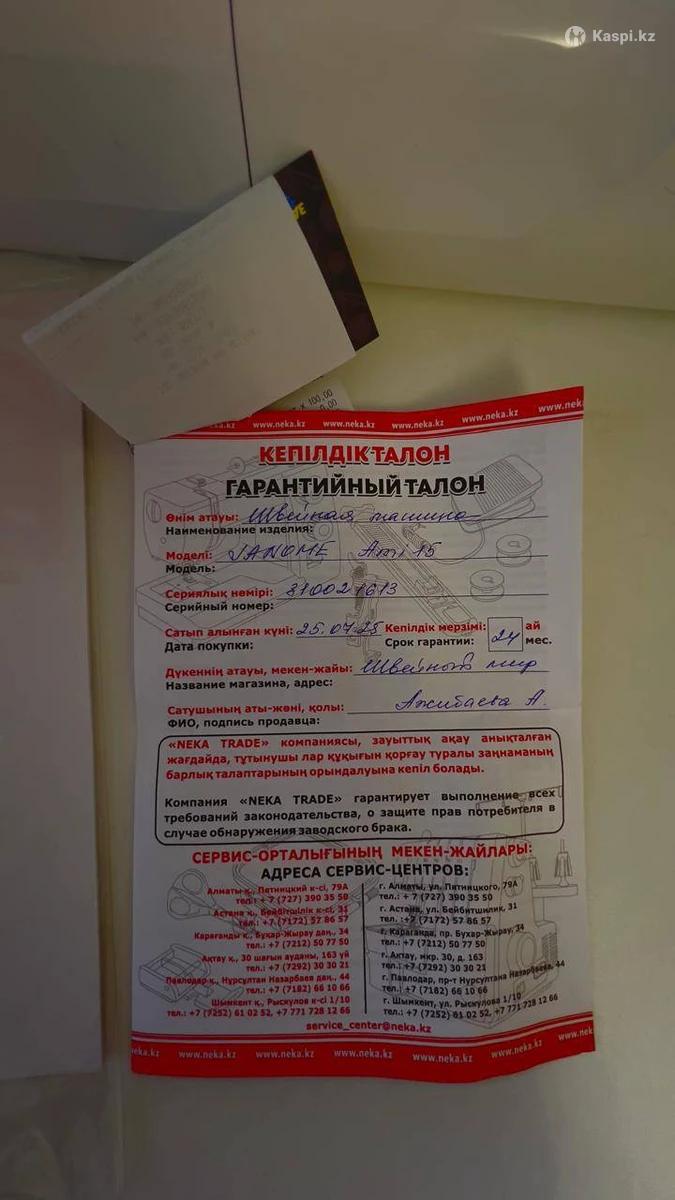 Kaspi.kz
x 100,00
www.neka.kz www.neka.kz www.neka.kz www.neka.kz
КЕПІЛДІК ТАЛОН
ГАРАНТИЙНЫЙ ТАЛОН
Өнім атауы: Швейная машина
Наименование изделия:
Моделі: JANOME Ami 15
Модель:
Сериялық нөмірі: 810021613
Серийный номер:
Сатып алынған күні: 25.07.25 Кепілдік мерзімі: 24 ай
Дата покупки: Срок гарантии: мес.
Дүкеннің атауы, мекен-жайы: Швейный мир
Название магазина, адрес:
Сатушының аты-жөні, қолы: Ажибаева А.
ФИО, подпись продавца:
«NEKA TRADE» компаниясы, зауыттық ақау анықталған
жағдайда, тұтынушы лар құқығын қорғау туралы заңнаманың
барлық талаптарының орындалуына кепіл болады.
Компания «NEKA TRADE» гарантирует выполнение всех
требований законодательства, о защите прав потребителя в
случае обнаружения заводского брака.
СЕРВИС-ОРТАЛЫҒЫНЫҢ МЕКЕН-ЖАЙЛАРЫ:
АДРЕСА СЕРВИС-ЦЕНТРОВ:
Алматы қ., Пятницкий к-сі, 79А
тел.: + 7 (727) 390 35 50
Астана қ., Бейбітшілік к-сі, 31
тел.: +7 (7172) 57 86 57
Қарағанды қ., Бұхар-Жырау даң., 34
тел.: +7 (7212) 50 77 50
Ақтау қ., 30 шағын ауданы, 163 үй
тел.: +7 (7292) 30 30 21
Павлодар қ., Нұрсұлтан Назарбаев даң., 44
тел.: +7 (7182) 66 10 66
Шымкент қ., Рыскулов к-сі 1/10
тел.: +7 (7252) 61 02 52, +7 771 728 12 66
г. Алматы, ул. Пятницкого, 79А
тел.: + 7 (727) 390 35 50
г. Астана, ул. Бейбитшилик, 31
тел.: +7 (7172) 57 86 57
г. Караганда, пр. Бухар-Жырау, 34
тел.: +7 (7212) 50 77 50
г. Актау, мкр. 30, д. 163
тел.: +7 (7292) 30 30 21
г. Павлодар, пр-т Нурсултана Назарбаева, 44
тел.: +7 (7182) 66 10 66
г. Шымкент, ул. Рыскулова 1/10
тел.: +7 (7252) 61 02 52, +7 771 728 12 66
service_center@neka.kz
www.neka.kz www.neka.kz www.neka.kz www.neka.kz www.neka.kz